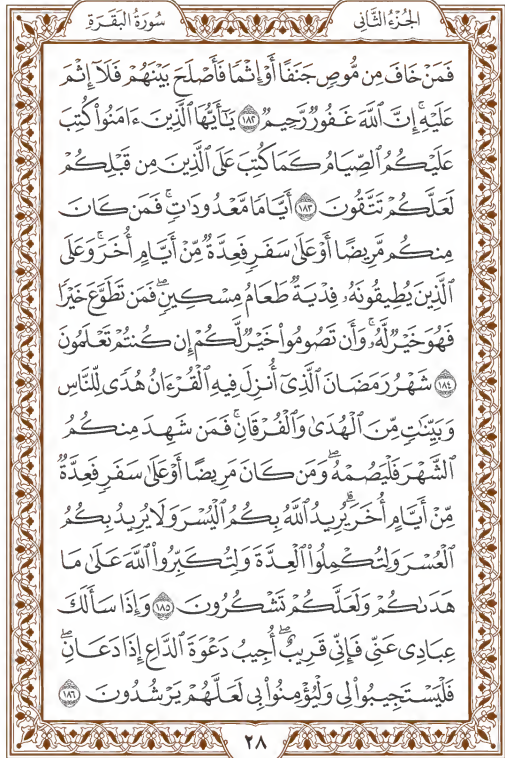 الجزء الثاني
سورة البقرة
فَمَنْ خَافَ مِن مُّوصٍ جَنَفًا أَوْ إِثْمًا فَأَصْلَحَ بَيْنَهُمْ فَلَآ إِثْمَ
عَلَيْهِۚ إِنَّ ٱللَّهَ غَفُورٌ رَّحِيمٌ ١٨٢ يَٰٓأَيُّهَا ٱلَّذِينَ ءَامَنُوا۟ كُتِبَ
عَلَيْكُمُ ٱلصِّيَامُ كَمَا كُتِبَ عَلَى ٱلَّذِينَ مِن قَبْلِكُمْ
لَعَلَّكُمْ تَتَّقُونَ ١٨٣ أَيَّامًا مَّعْدُودَٰتٍۚ فَمَن كَانَ
مِنكُم مَّرِيضًا أَوْ عَلَىٰ سَفَرٍ فَعِدَّةٌ مِّنْ أَيَّامٍ أُخَرَۚ وَعَلَى
ٱلَّذِينَ يُطِيقُونَهُۥ فِدْيَةٌ طَعَامُ مِسْكِينٍۖ فَمَن تَطَوَّعَ خَيْرًا
فَهُوَ خَيْرٌ لَّهُۥۚ وَأَن تَصُومُوا۟ خَيْرٌ لَّكُمْ إِن كُنتُمْ تَعْلَمُونَ
١٨٤ شَهْرُ رَمَضَانَ ٱلَّذِىٓ أُنزِلَ فِيهِ ٱلْقُرْءَانُ هُدًى لِّلنَّاسِ
وَبَيِّنَٰتٍ مِّنَ ٱلْهُدَىٰ وَٱلْفُرْقَانِۚ فَمَن شَهِدَ مِنكُمُ
ٱلشَّهْرَ فَلْيَصُمْهُۖ وَمَن كَانَ مَرِيضًا أَوْ عَلَىٰ سَفَرٍ فَعِدَّةٌ
مِّنْ أَيَّامٍ أُخَرَۗ يُرِيدُ ٱللَّهُ بِكُمُ ٱلْيُسْرَ وَلَا يُرِيدُ بِكُمُ
ٱلْعُسْرَ وَلِتُكْمِلُوا۟ ٱلْعِدَّةَ وَلِتُكَبِّرُوا۟ ٱللَّهَ عَلَىٰ مَا
هَدَىٰكُمْ وَلَعَلَّكُمْ تَشْكُرُونَ ١٨٥ وَإِذَا سَأَلَكَ
عِبَادِى عَنِّى فَإِنِّى قَرِيبٌۖ أُجِيبُ دَعْوَةَ ٱلدَّاعِ إِذَا دَعَانِۖ
فَلْيَسْتَجِيبُوا۟ لِى وَلْيُؤْمِنُوا۟ بِى لَعَلَّهُمْ يَرْشُدُونَ ١٨٦
٢٨